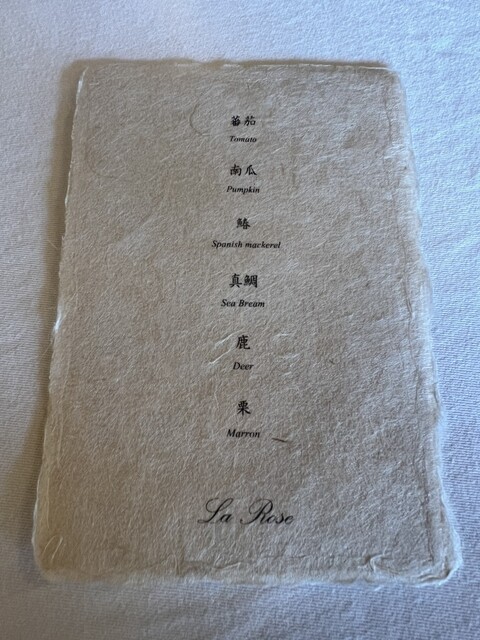 蕃茄
Tomato
南瓜
Pumpkin
鰆
Spanish mackerel
真鯛
Sea Bream
鹿
Deer
栗
Marron
La Rose